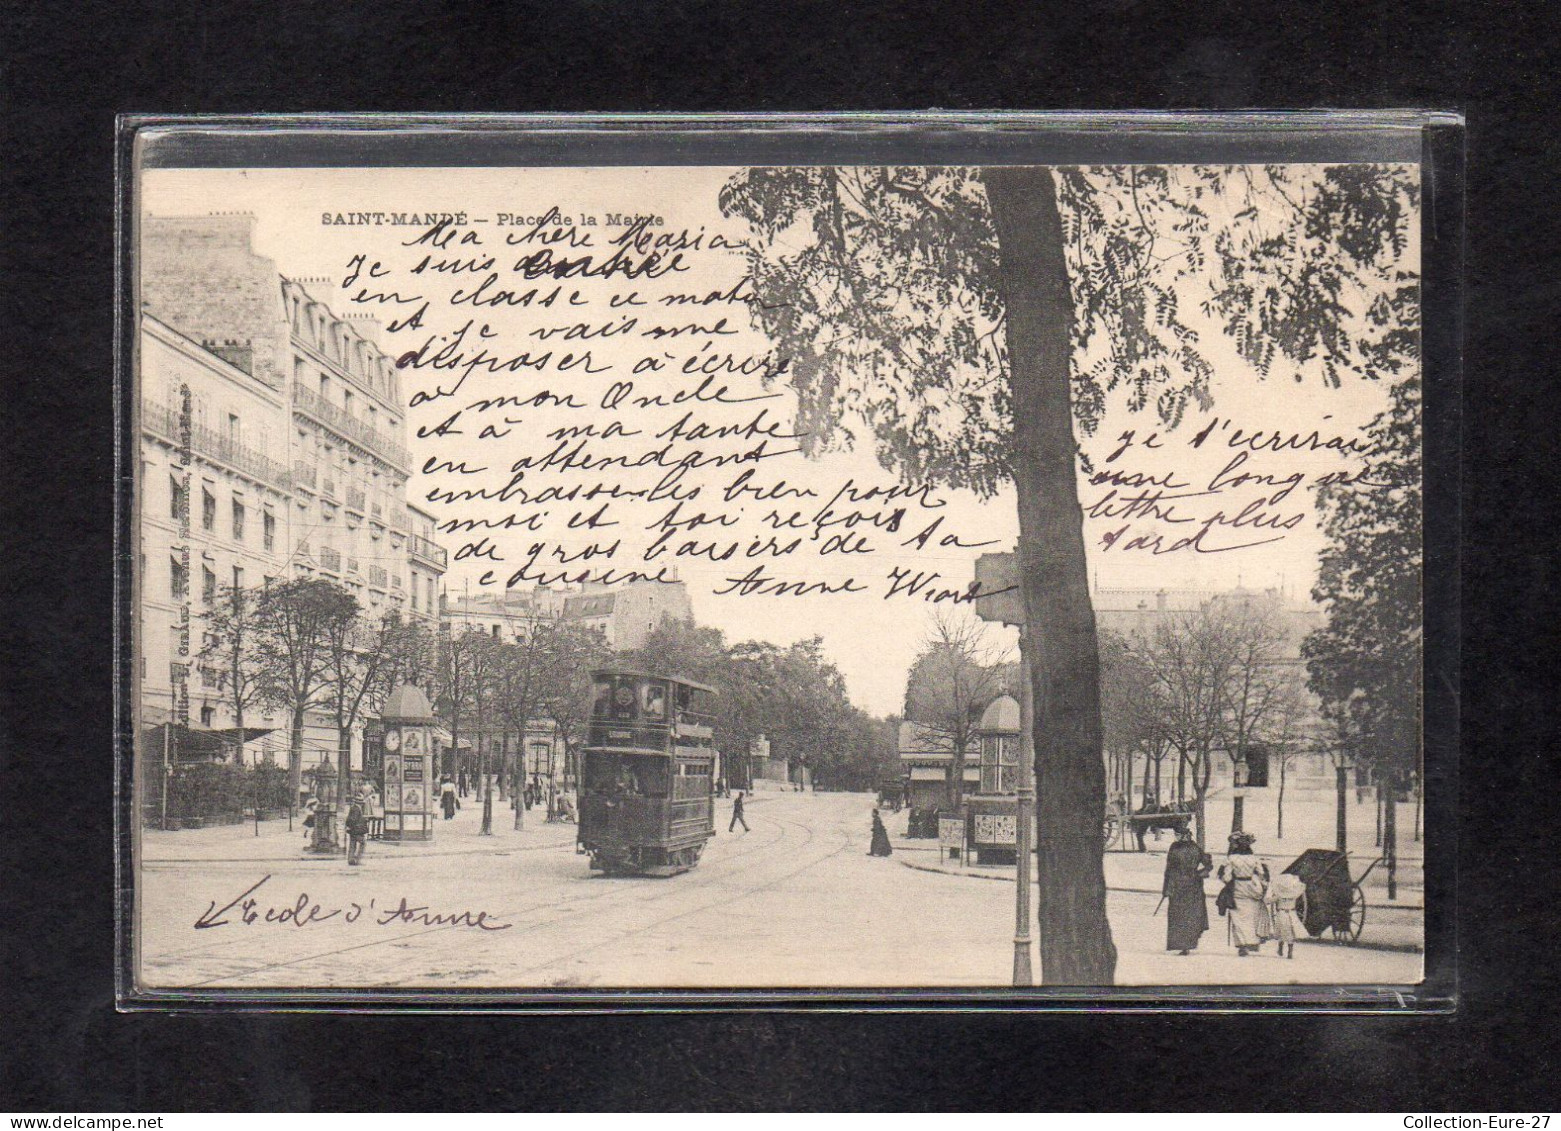 SAINT-MANDÉ — Place de la Mairie
Ma chère Maria
Je suis
en classe ce matin
et je vais me
disposer à écrire
à mon Oncle
et à ma tante
en attendant
embrasse-les bien pour
moi et toi reçois
de gros baisers de ta
cousine Anne Wiart
Je t'ecrirai
une longue
lettre plus
tard
Ecole d'Anne
Collection-Eure-27